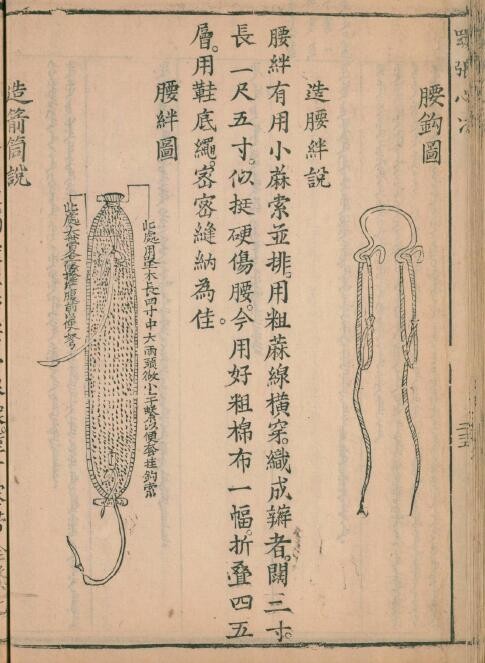 腰鈎圖
造腰絆說
腰絆有用小蔴索並排。用粗蔴線橫穿。織成辮者。闊三寸。
長一尺五寸。似挺硬傷腰。今用好粗棉布一幅。折叠四五
層。用鞋底繩。密密縫納為佳。
腰絆圖
此處用堅木長四寸中大兩頭微小以便套挂鈎索
此處
造箭筒說